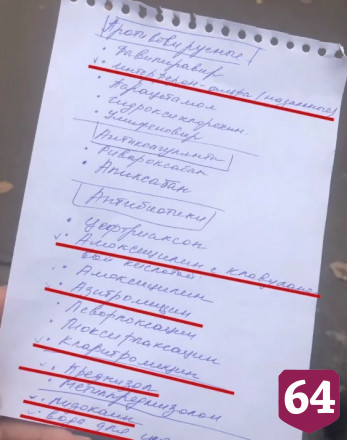 Противовирусные
• Фавипиравир
✓• Интерферон-альфа (назальный)
• Парацетамол
• Гидроксихлорохин
• Умифеновир
Антикоагулянты
• Ривароксабан
• Апиксабан
Антибиотики
• Цефтриаксон
✓• Амоксициллин с клавулан
овой кислотой
• Амоксициллин
✓• Азитромицин
• Левофлоксацин
• Моксифлоксацин
✓• Кларитромицин
✓• Преднизол
• Метилпреднизолон
✓• Лидокаин
✓• Вода для
64